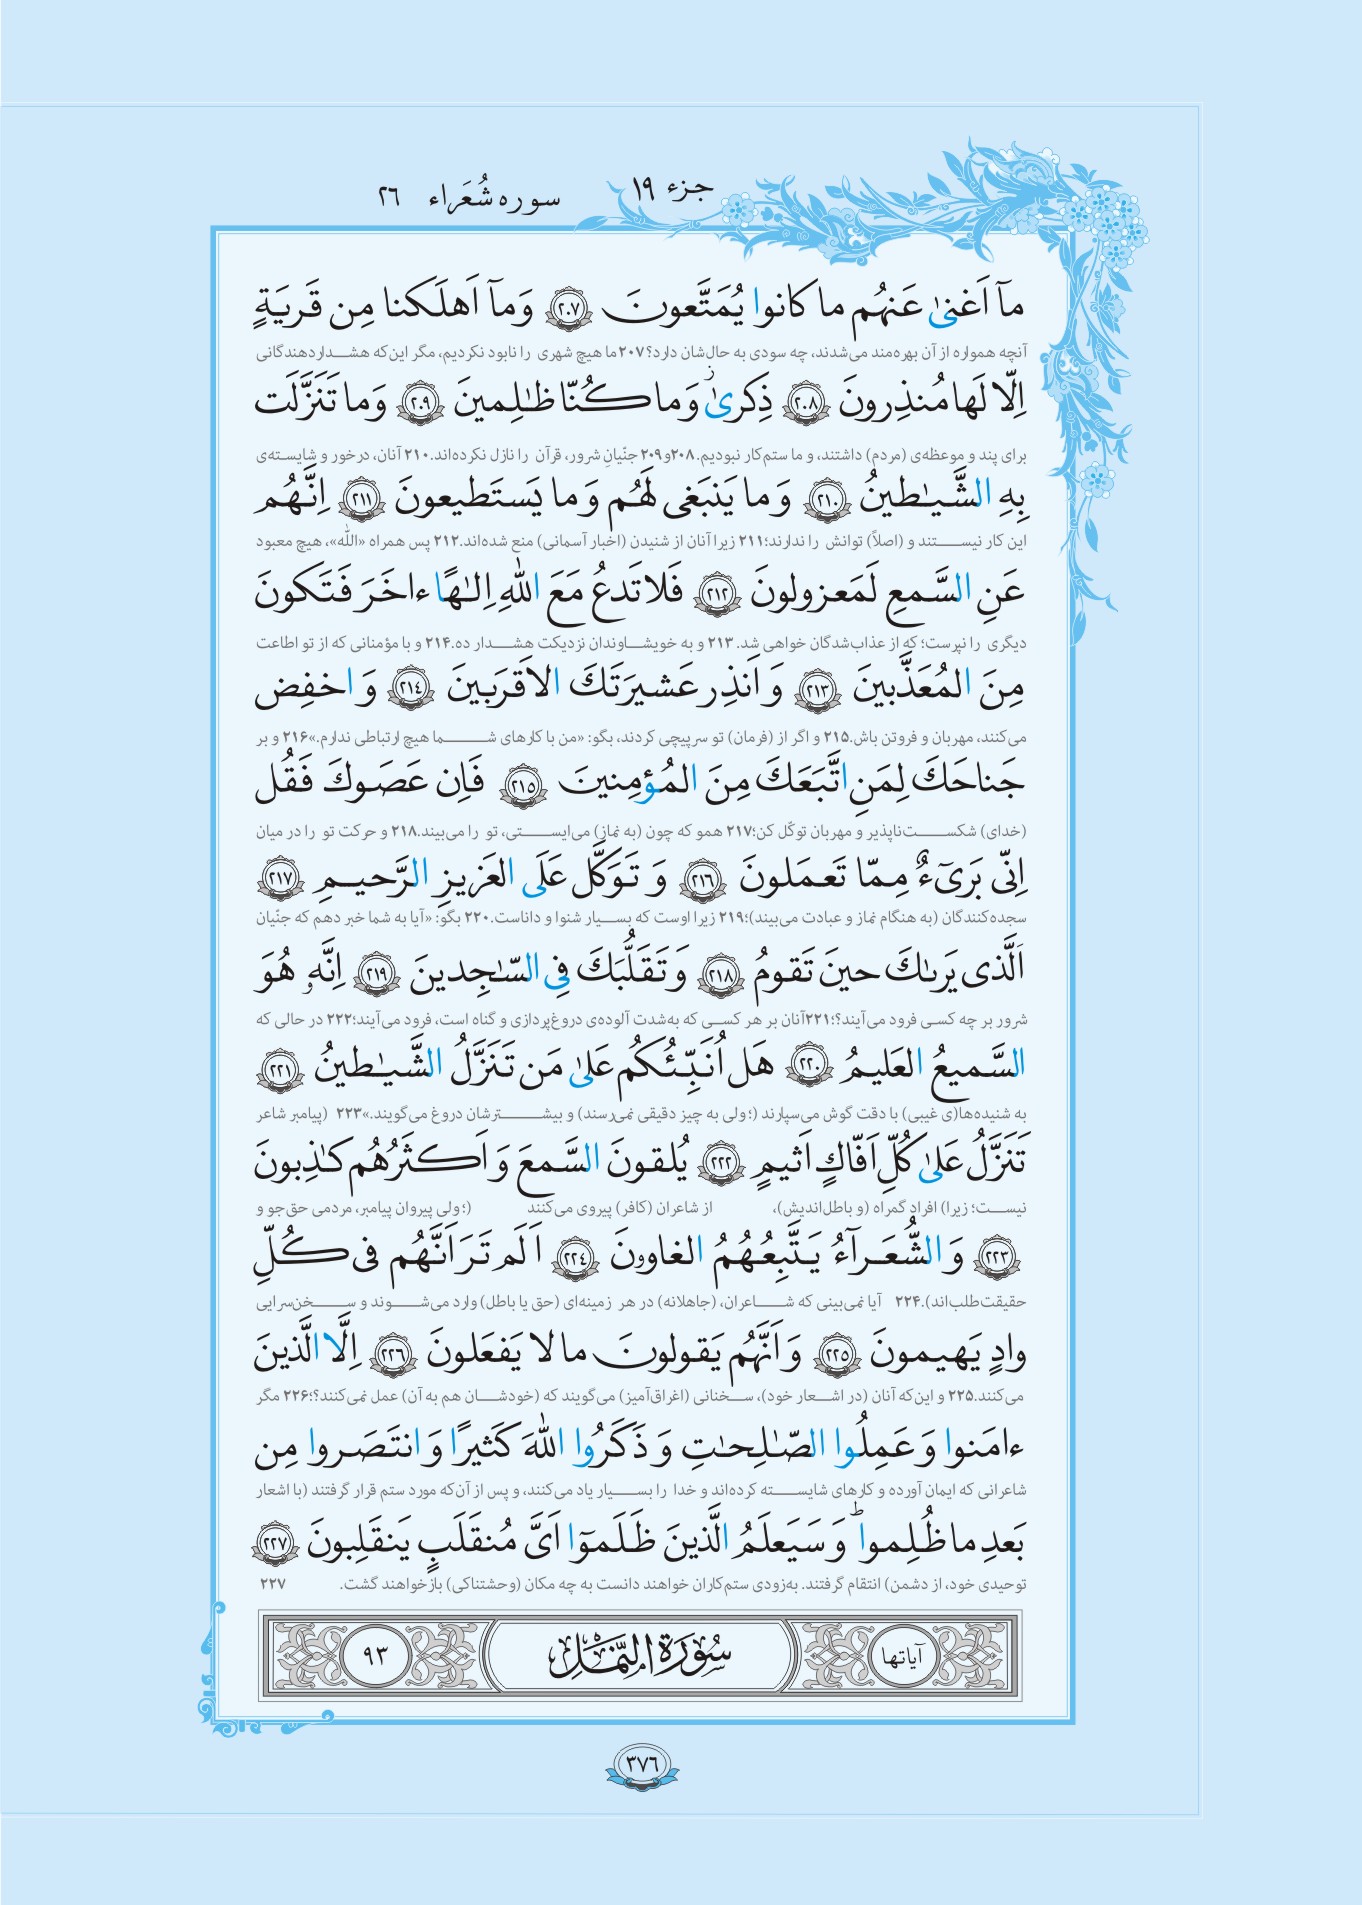 جزء ۱۹ سوره شُعَراء ۲۶
مآ اَغنىٰ عَنهُم ما كانوا يُمَتَّعونَ ﴿٢٠٧﴾ وَمآ اَهلَكنا مِن قَريَةٍ
آنچه همواره از آن بهره‌مند می‌شدند، چه سودی به حال‌شان دارد؟۲۰۷ما هیچ شهری را نابود نکردیم، مگر این‌که هشداردهندگانی
اِلّا لَها مُنذِرونَ ﴿٢٠٨﴾ ذِكرىٰ ۛ وَما كُنّا ظٰلِمينَ ﴿٢٠٩﴾ وَما تَنَزَّلَت
برای پند و موعظه‌ی (مردم) داشتند، و ما ستم‌کار نبودیم.۲۰۸و۲۰۹ جنّیانِ شرور، قرآن را نازل نکرده‌اند.۲۱۰ آنان، درخور و شایسته‌ی
بِهِ الشَّيٰطينُ ﴿٢١٠﴾ وَما يَنبَغى لَهُم وَما يَستَطيعونَ ﴿٢١١﴾ اِنَّهُم
این کار نیستند و (اصلاً) توانش را ندارند؛۲۱۱ زیرا آنان از شنیدن (اخبار آسمانی) منع شده‌اند.۲۱۲ پس همراه «اللّٰه»، هیچ معبود
عَنِ السَّمعِ لَمَعزولونَ ﴿٢١٢﴾ فَلا تَدعُ مَعَ اللّٰهِ اِلٰهًا ءاخَرَ فَتَكونَ
دیگری را نپرست؛ که از عذاب‌شدگان خواهی شد. ۲۱۳ و به خویشاوندان نزدیکت هشدار ده.۲۱۴ و با مؤمنانی که از تو اطاعت
مِنَ المُعَذَّبينَ ﴿٢١٣﴾ وَ اَنذِر عَشيرَتَكَ الاَقرَبينَ ﴿٢١٤﴾ وَ اخفِض
می‌کنند، مهربان و فروتن باش.۲۱۵ و اگر از (فرمان) تو سرپیچی کردند، بگو: «من با کارهای شما هیچ ارتباطی ندارم.»۲۱۶ و بر
جَناحَكَ لِمَنِ اتَّبَعَكَ مِنَ المُؤمِنينَ ﴿٢١٥﴾ فَاِن عَصَوكَ فَقُل
(خدای) شکست‌ناپذیر و مهربان توکّل کن؛۲۱۷ همو که چون (به نماز) می‌ایستی، تو را می‌بیند.۲۱۸ و حرکت تو را در میان
اِنّى بَرىءٌ مِمّا تَعمَلونَ ﴿٢١٦﴾ وَ تَوَكَّل عَلَى العَزيزِ الرَّحيمِ ﴿٢١٧﴾
سجده‌کنندگان (به هنگام نماز و عبادت می‌بیند)؛۲۱۹ زیرا اوست که بسیار شنوا و داناست.۲۲۰ بگو: «آیا به شما خبر دهم که جنّیان
اَلَّذى يَرىٰكَ حينَ تَقومُ ﴿٢١٨﴾ وَ تَقَلُّبَكَ فِى السّٰجِدينَ ﴿٢١٩﴾ اِنَّهٗ هُوَ
شرور بر چه کسی فرود می‌آیند؟؛۲۲۱آنان بر هر کسی که به‌شدت آلوده‌ی دروغ‌پردازی و گناه است، فرود می‌آیند؛۲۲۲ در حالی که
السَّميعُ العَليمُ ﴿٢٢٠﴾ هَل اُنَبِّئُكُم عَلىٰ مَن تَنَزَّلُ الشَّيٰطينُ ﴿٢٢١﴾
به شنیده‌ها(ی غیبی) با دقت گوش می‌سپارند (؛ ولی به چیز دقیقی نمی‌رسند) و بیشترشان دروغ می‌گویند.»۲۲۳ (پیامبر شاعر
تَنَزَّلُ عَلىٰ كُلِّ اَفّاكٍ اَثيمٍ ﴿٢٢٢﴾ يُلقونَ السَّمعَ وَ اَكثَرُهُم كٰذِبونَ
نیست؛ زیرا) افراد گمراه (و باطل‌اندیش)، از شاعران (کافر) پیروی می‌کنند (؛ ولی پیروان پیامبر، مردمی حق‌جو و
﴿٢٢٣﴾ وَ الشُّعَرآءُ يَتَّبِعُهُمُ الغاوونَ ﴿٢٢٤﴾ اَلَم تَرَ اَنَّهُم فى كُلِّ
حقیقت‌طلب‌اند).۲۲۴ آیا نمی‌بینی که شاعران، (جاهلانه) در هر زمینه‌ای (حق یا باطل) وارد می‌شوند و سخن‌سرایی
وادٍ يَهيمونَ ﴿٢٢٥﴾ وَ اَنَّهُم يَقولونَ ما لا يَفعَلونَ ﴿٢٢٦﴾ اِلَّا الَّذينَ
می‌کنند.۲۲۵ و این‌که آنان (در اشعار خود)، سخنانی (اغراق‌آمیز) می‌گویند که (خودشان هم به آن) عمل نمی‌کنند؟؛۲۲۶ مگر
ءامَنوا وَ عَمِلُوا الصّٰلِحٰتِ وَ ذَكَرُوا اللّٰهَ كَثيرًا وَ انتَصَروا مِن
شاعرانی که ایمان آورده و کارهای شایسته کرده‌اند و خدا را بسیار یاد می‌کنند، و پس از آن‌که مورد ستم قرار گرفتند (با اشعار
بَعدِ ما ظُلِموا ؕ وَ سَيَعلَمُ الَّذينَ ظَلَموٓا اَىَّ مُنقَلَبٍ يَنقَلِبونَ ﴿٢٢٧﴾
توحیدی خود، از دشمن) انتقام گرفتند. به‌زودی ستم‌کاران خواهند دانست به چه مکان (وحشتناکی) بازخواهند گشت. ۲۲۷
آیاتها سُورَةُ النَّمْلِ ۹۳
۳۷۶